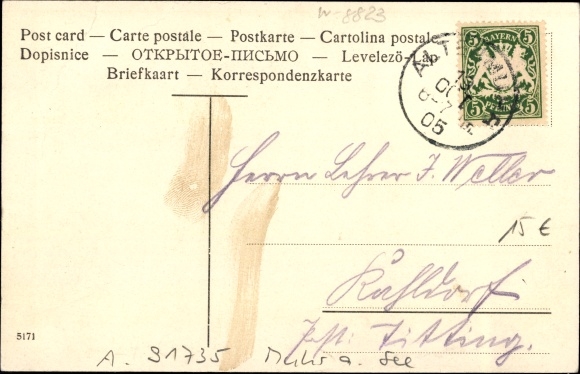 w-8823
Post card — Carte postale — Postkarte — Cartolina postale
Dopisnice — ОТКРЫТОЕ-ПИСЬМО — Levelező-Lap
Briefkaart — Korrespondenzkarte
5 BAYERN 5
5 PFENNIG 5
OCT
6-7
05
Herrn Lehrer J. Weller
15 €
Kahldorf
Post: Titting.
5171
A. 91735 Muhr a. See